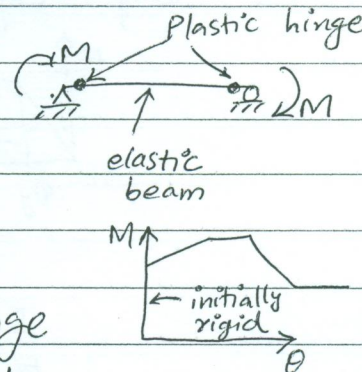 Plastic hinge
M
M
elastic
beam
M
initially
rigid
ge
θ